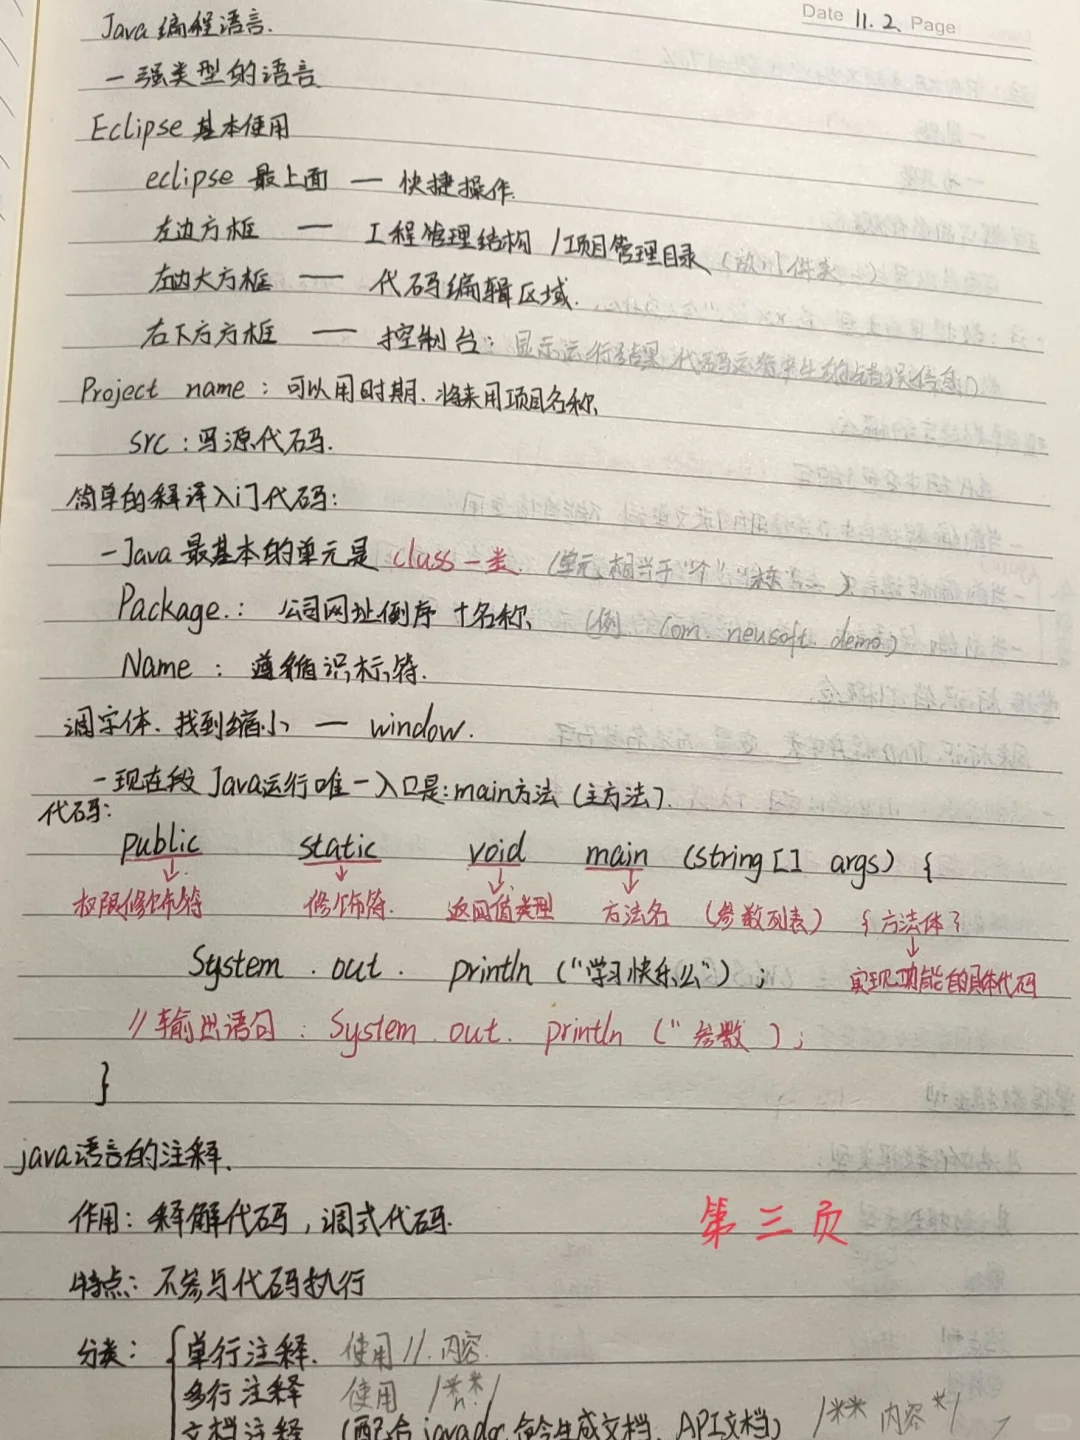 Date 11.2. Page
Java 编程语言.
— 强类型的语言
Eclipse 基本使用
eclipse 最上面 — 快捷操作.
左边方框 — 工程管理结构 / 项目管理目录 (
大方框 — 代码编辑区域.
右下方方框 — 控制台: 显示运行结果 代码运 错误信息)
Project name : 可以用时期. 将来用项目名称.
src : 写源代码.
简单的释译入门代码:
— Java 最基本的单元是 class — 类. (单元 相当于 "个"
Package.: 公司网址倒序 + 名称. (例 com. neusoft. demo)
Name : 遵循识标符.
调字体. 找到缩小 — window.
— 现在段 Java运行唯一入口是: main方法 (主方法).
代码:
public static void main (string [] args) {
权限修饰符 修饰符. 返回值类型 方法名 (参数列表) { 方法体 }
System . out . println ("学习快乐么") ;
实现功能的具体代码
// 输出语句 : System. out. println (" 参数 ) ;
}
java语言的注释.
作用: 释解代码, 调式代码.
第三页
特点: 不参与代码执行
分类: { 单行注释. 使用 //. 内容.
多行注释 使用
文档注释 (配合 javadoc 命令生成文档. API文档) /** 内容 */